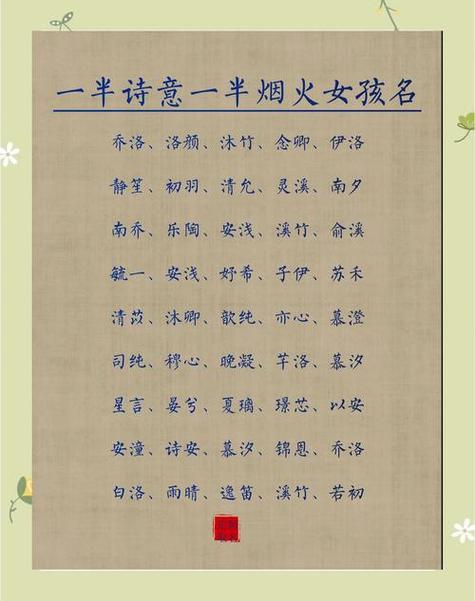 一半诗意一半烟火女孩名
乔洛、洛颜、沐竹、念卿、伊洛
静笙、初羽、清允、灵溪、南夕
南乔、乐陶、安浅、溪竹、俞溪
毓一、安浅、妤希、子伊、苏禾
清苡、沐卿、歆纯、亦心、慕澄
司纯、穆心、晚凝、芊洛、慕汐
星言、晏兮、夏璃、璟芯、以安
安潼、诗安、慕汐、锦恩、乔洛
白洛、雨晴、逸笛、溪竹、若初